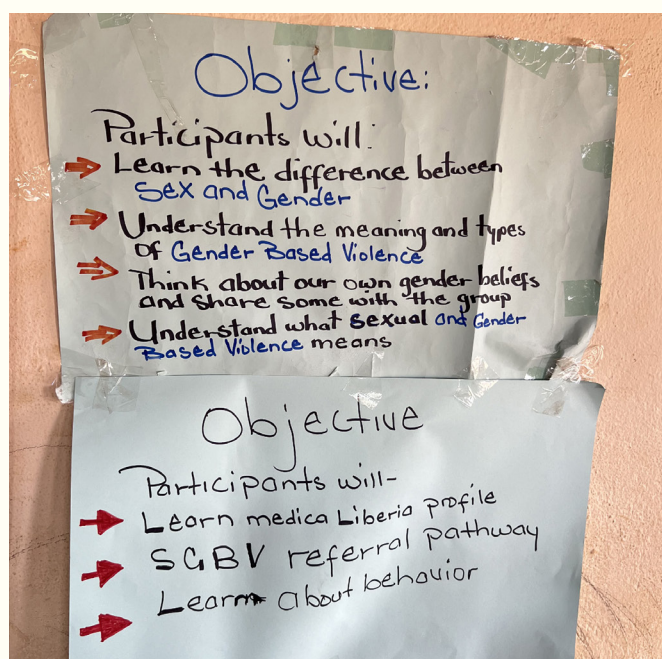 Objective:
Participants will:
Learn the difference between
Sex and Gender
Understand the meaning and types
of Gender Based Violence
Think about our own gender beliefs
and share some with the group
Understand what sexual and Gender
Based Violence means
Objective
Participants will-
Learn medica Liberia profile
SGBV referral pathway
Learn about behavior